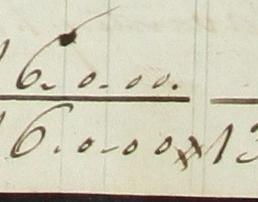 16. 0. 00.
16. 0. 00 x 13